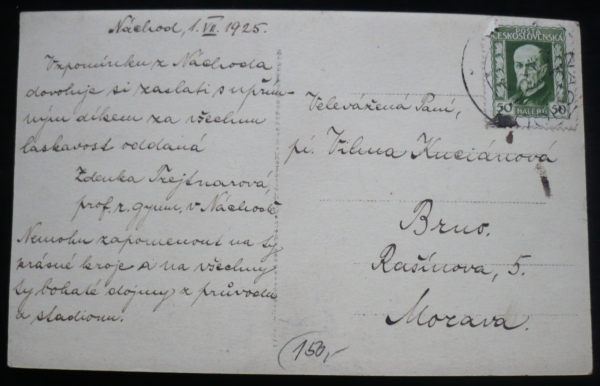 Náchod, 1. VII. 1925.
Vzpomínku z Náchoda
dovoluje si zaslati s upřím-
ným díkem za všechnu
laskavost oddaná
Zdenka Trejtnarová,
prof. r. gymn. v Náchodě
Nemohu zapomenout na ty
krásné kroje a na všechny
ty bohaté dojmy z průvodu
a stadionu.
POŠTA
ČESKOSLOVENSKÁ
50 HALÉŘŮ 50
Velevážená Paní,
pí. Vilma Kuciánová
Brno.
Rašínova, 5.
Morava.
150,-